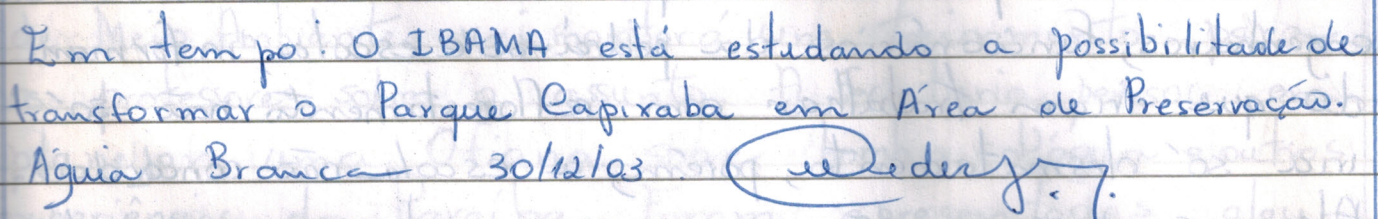 Em tempo: O IBAMA está estudando a possibilitade de
transformar o Parque Capixaba em Área de Preservação.
Águia Branca 30/12/03.